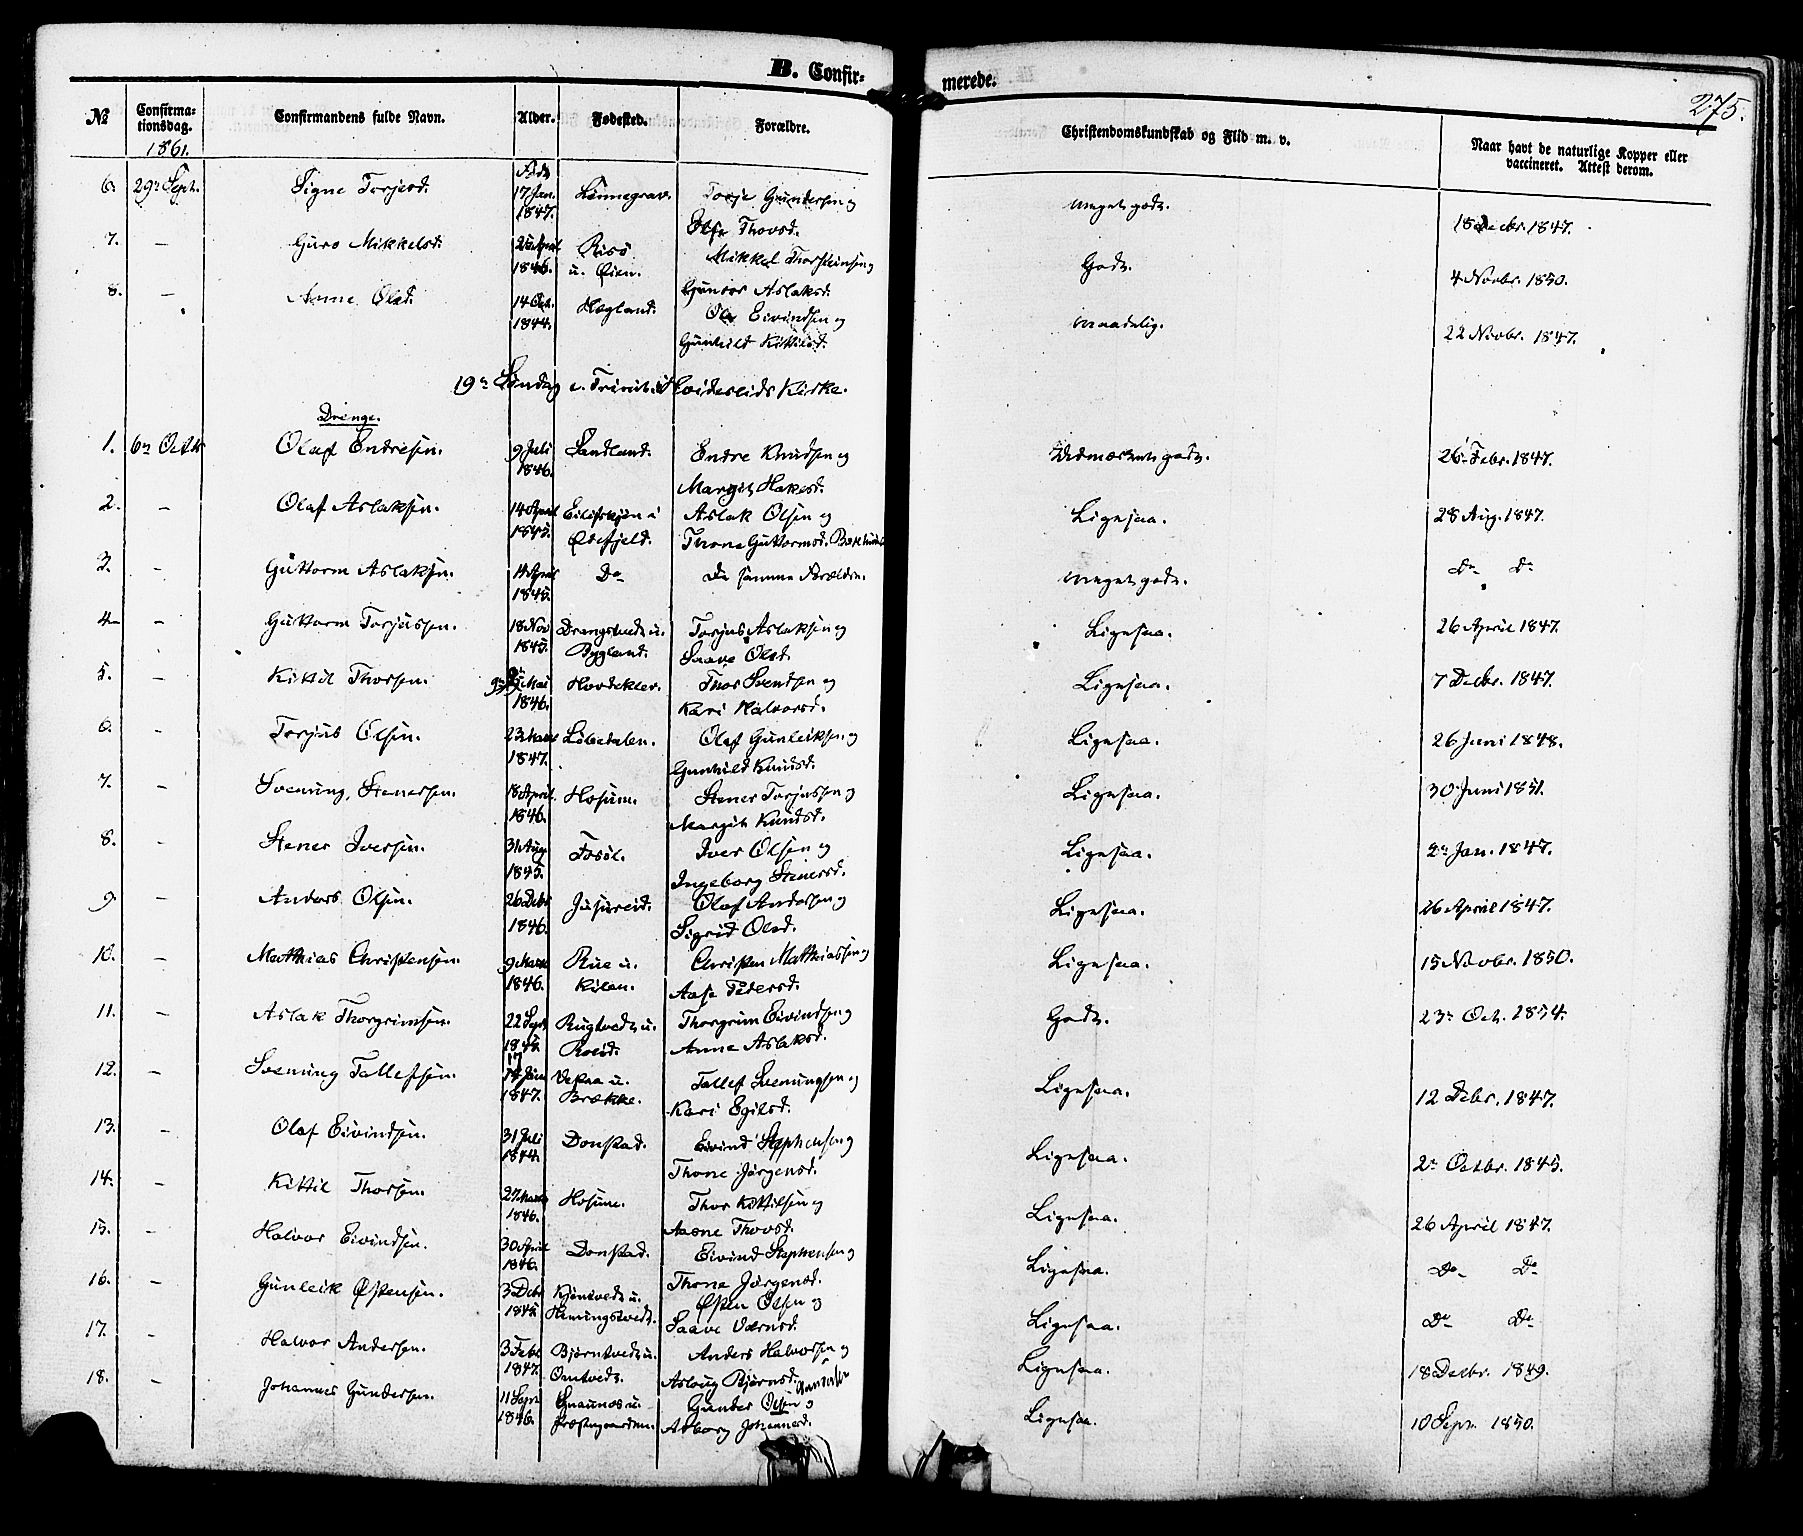 B. Confir-
merede.
275.
№ Confirma-
tionsdag.
1861.
Confirmandens fulde Navn.
Alder.
Fødested.
Forældre.
Christendomskundskab og Flid m. v.
Naar havt de naturlige Kopper eller
vaccineret. Attest derom.
6. 29de Sept. Signe Torjesd. Født 17 Jan. 1847. Lønnegrav. Torje Gundersen og meget godt. 18 Decbr. 1847.
Thovsd.
7. – Guro Mikkelsd. April 1846. Risø Mikkel Thorsteinsen og Godt. 4 Novbr. 1850.
u. Øien. Gunvor Aslaksd.
8. – Anne Olsd. 14 Oct. 1844. Høgland. Ole Eivindsen og maadelig. 22 Novbr. 1847.
Gunhild Kittilsd.
19de Søndag e. Trinit. i Hvideseids Kirke.
Drenge.
1. 6te Octbr Olaf Endresen. 9 Juli 1846. Sandland. Endre Knudsen og Udmærket godt. 26 Febr. 1847.
Margit Hakesd.
2. – Olaf Aslaksen. 14 April 1845. u Aslak Olsen og Ligesaa. 28 Aug. 1847.
Ødefjeld. Thone Guttormsd.
3. – Guttorm Aslaksen. 14 April 1845. Do De samme Forældre. meget godt. Do Do
4. – Guttorm Torjussen. 18 Nov 1845. Drangstvedt u. Torjus Aslaksen og Ligesaa. 26 April 1847.
Bygland. Saave Olsd.
5. – Kittil Thorsen. Mai 1846. Hovdekler. Thor Svendsen og Ligesaa. 7 Decbr. 1847.
Kari Halvorsd.
6. – Torjus Olsen. 23 Marts 1847. Løbedalen. Olaf Gunleiksen og Ligesaa. 26 Juni 1848.
Gunhild Knudsd.
7. – Svenung Stenersen. 18 April 1846. Hosum. Stener Torjussen og Ligesaa. 30 Juni 1851.
Margit Knudsd.
8. – Stener Iversen. 31 Aug 1845. Iver Olsen og Ligesaa. 2de Jan. 1847.
Ingeborg Stenersd.
9. – Anders Olsen. 26 Debr 1846. Juvreid. Olaf Andersen og Ligesaa. 26 April 1847.
Sigrid Olsd.
10. – Matthias Christensen. 9 Marts 1846. Rue u. Christen Matthiassen og Ligesaa. 15 Novbr. 1850.
Kilen. Aase Pedersd.
11. – Aslak Thorgrimsen. 22 Sept 1845. Rugtvedt u. Thorgrim Eivindsen og Godt. 23de Oct. 1854.
Roeid. Anne Aslaksd.
12. – Svenung Tallefsen. 17 Jan 1847. Vekaa u. Tallef Svenungsen og Ligesaa. 12 Debr. 1847.
Brække. Kari Egilsd.
13. – Olaf Eivindsen. 31 Juli 1844. Donstad. Eivind Stephensen og Ligesaa. 2de Octbr. 1845.
Thone Jørgensd.
14. – Kittil Thorsen. 27 Marts 1846. Hosum. Thor Kittilsen og Ligesaa. 26 April 1847.
Aasne Thovsd.
15. – Halvor Eivindsen. 30 April 1846. Donstad. Eivind Stephensen og Ligesaa. Do Do
Thone Jørgensd.
16. – Gunleik Østensen. 3 Debr 1845. Kjøntvedt u. Østen Olsen og Ligesaa. Do Do
Hemingstvedt. Saave
17. – Halvor Andersen. 3 Febr 1847. Bjørntvedt u. Anders Halvorsen og Ligesaa. 18 Decbr. 1849.
Omtvedt. Aslaug Bjørnsd.
18. – Johannes Gundersen. 11 Sept 1846. u. Gunder Olsen og Ligesaa. 10 Sept. 1850.
Præstegaarden. Asborg Johannesd.